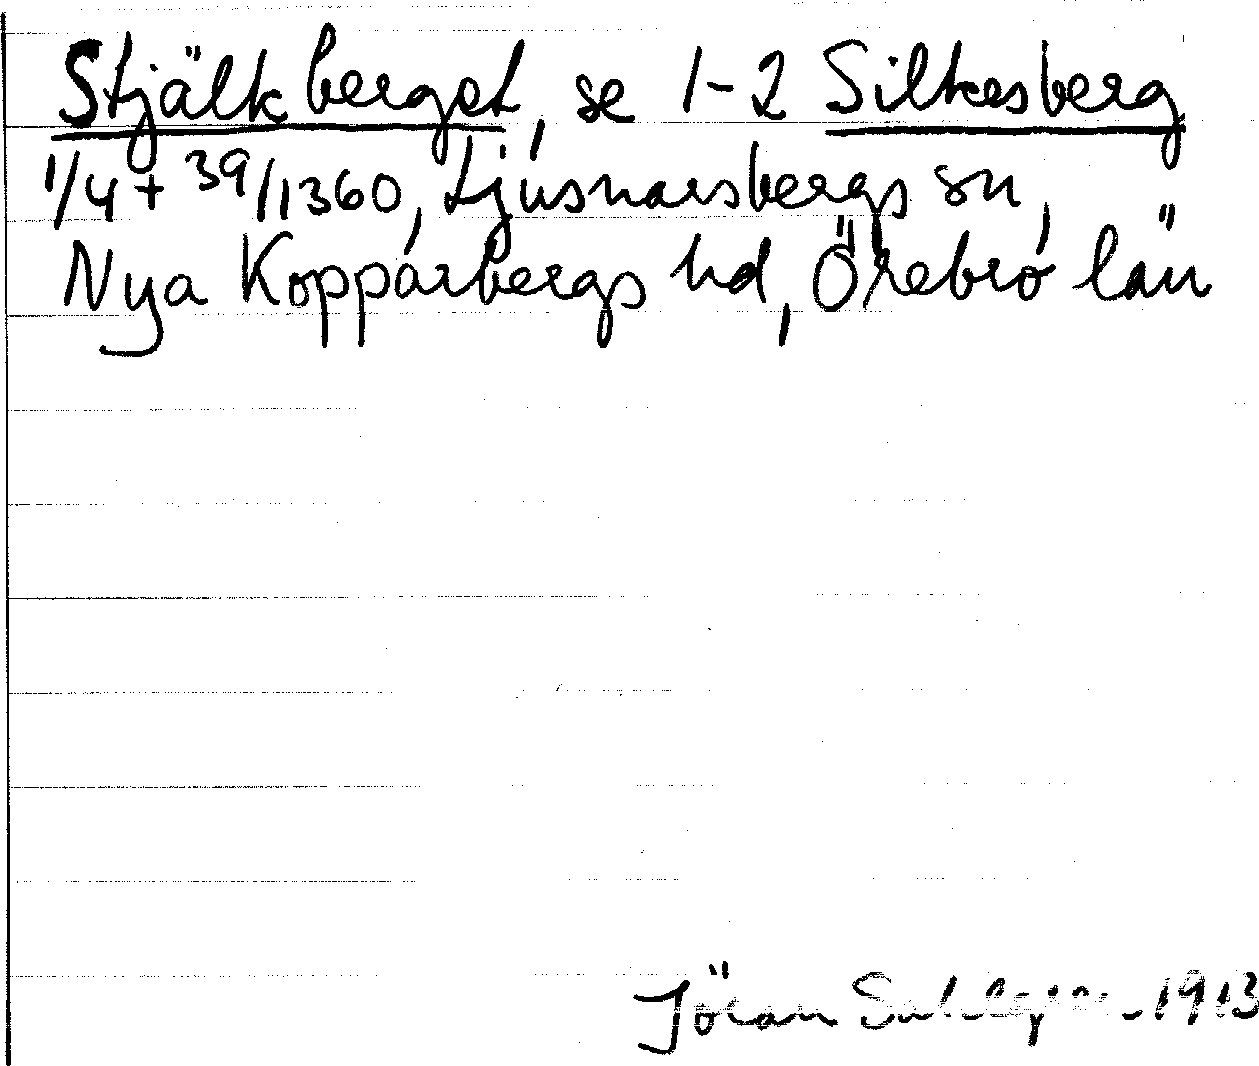 Stjälkberget, se 1-2 Silkesberg
1/4 + 39/1360, Ljusnarsbergs sn,
Nya Kopparbergs hd, Örebro län
Jöran Sahlgren 1913